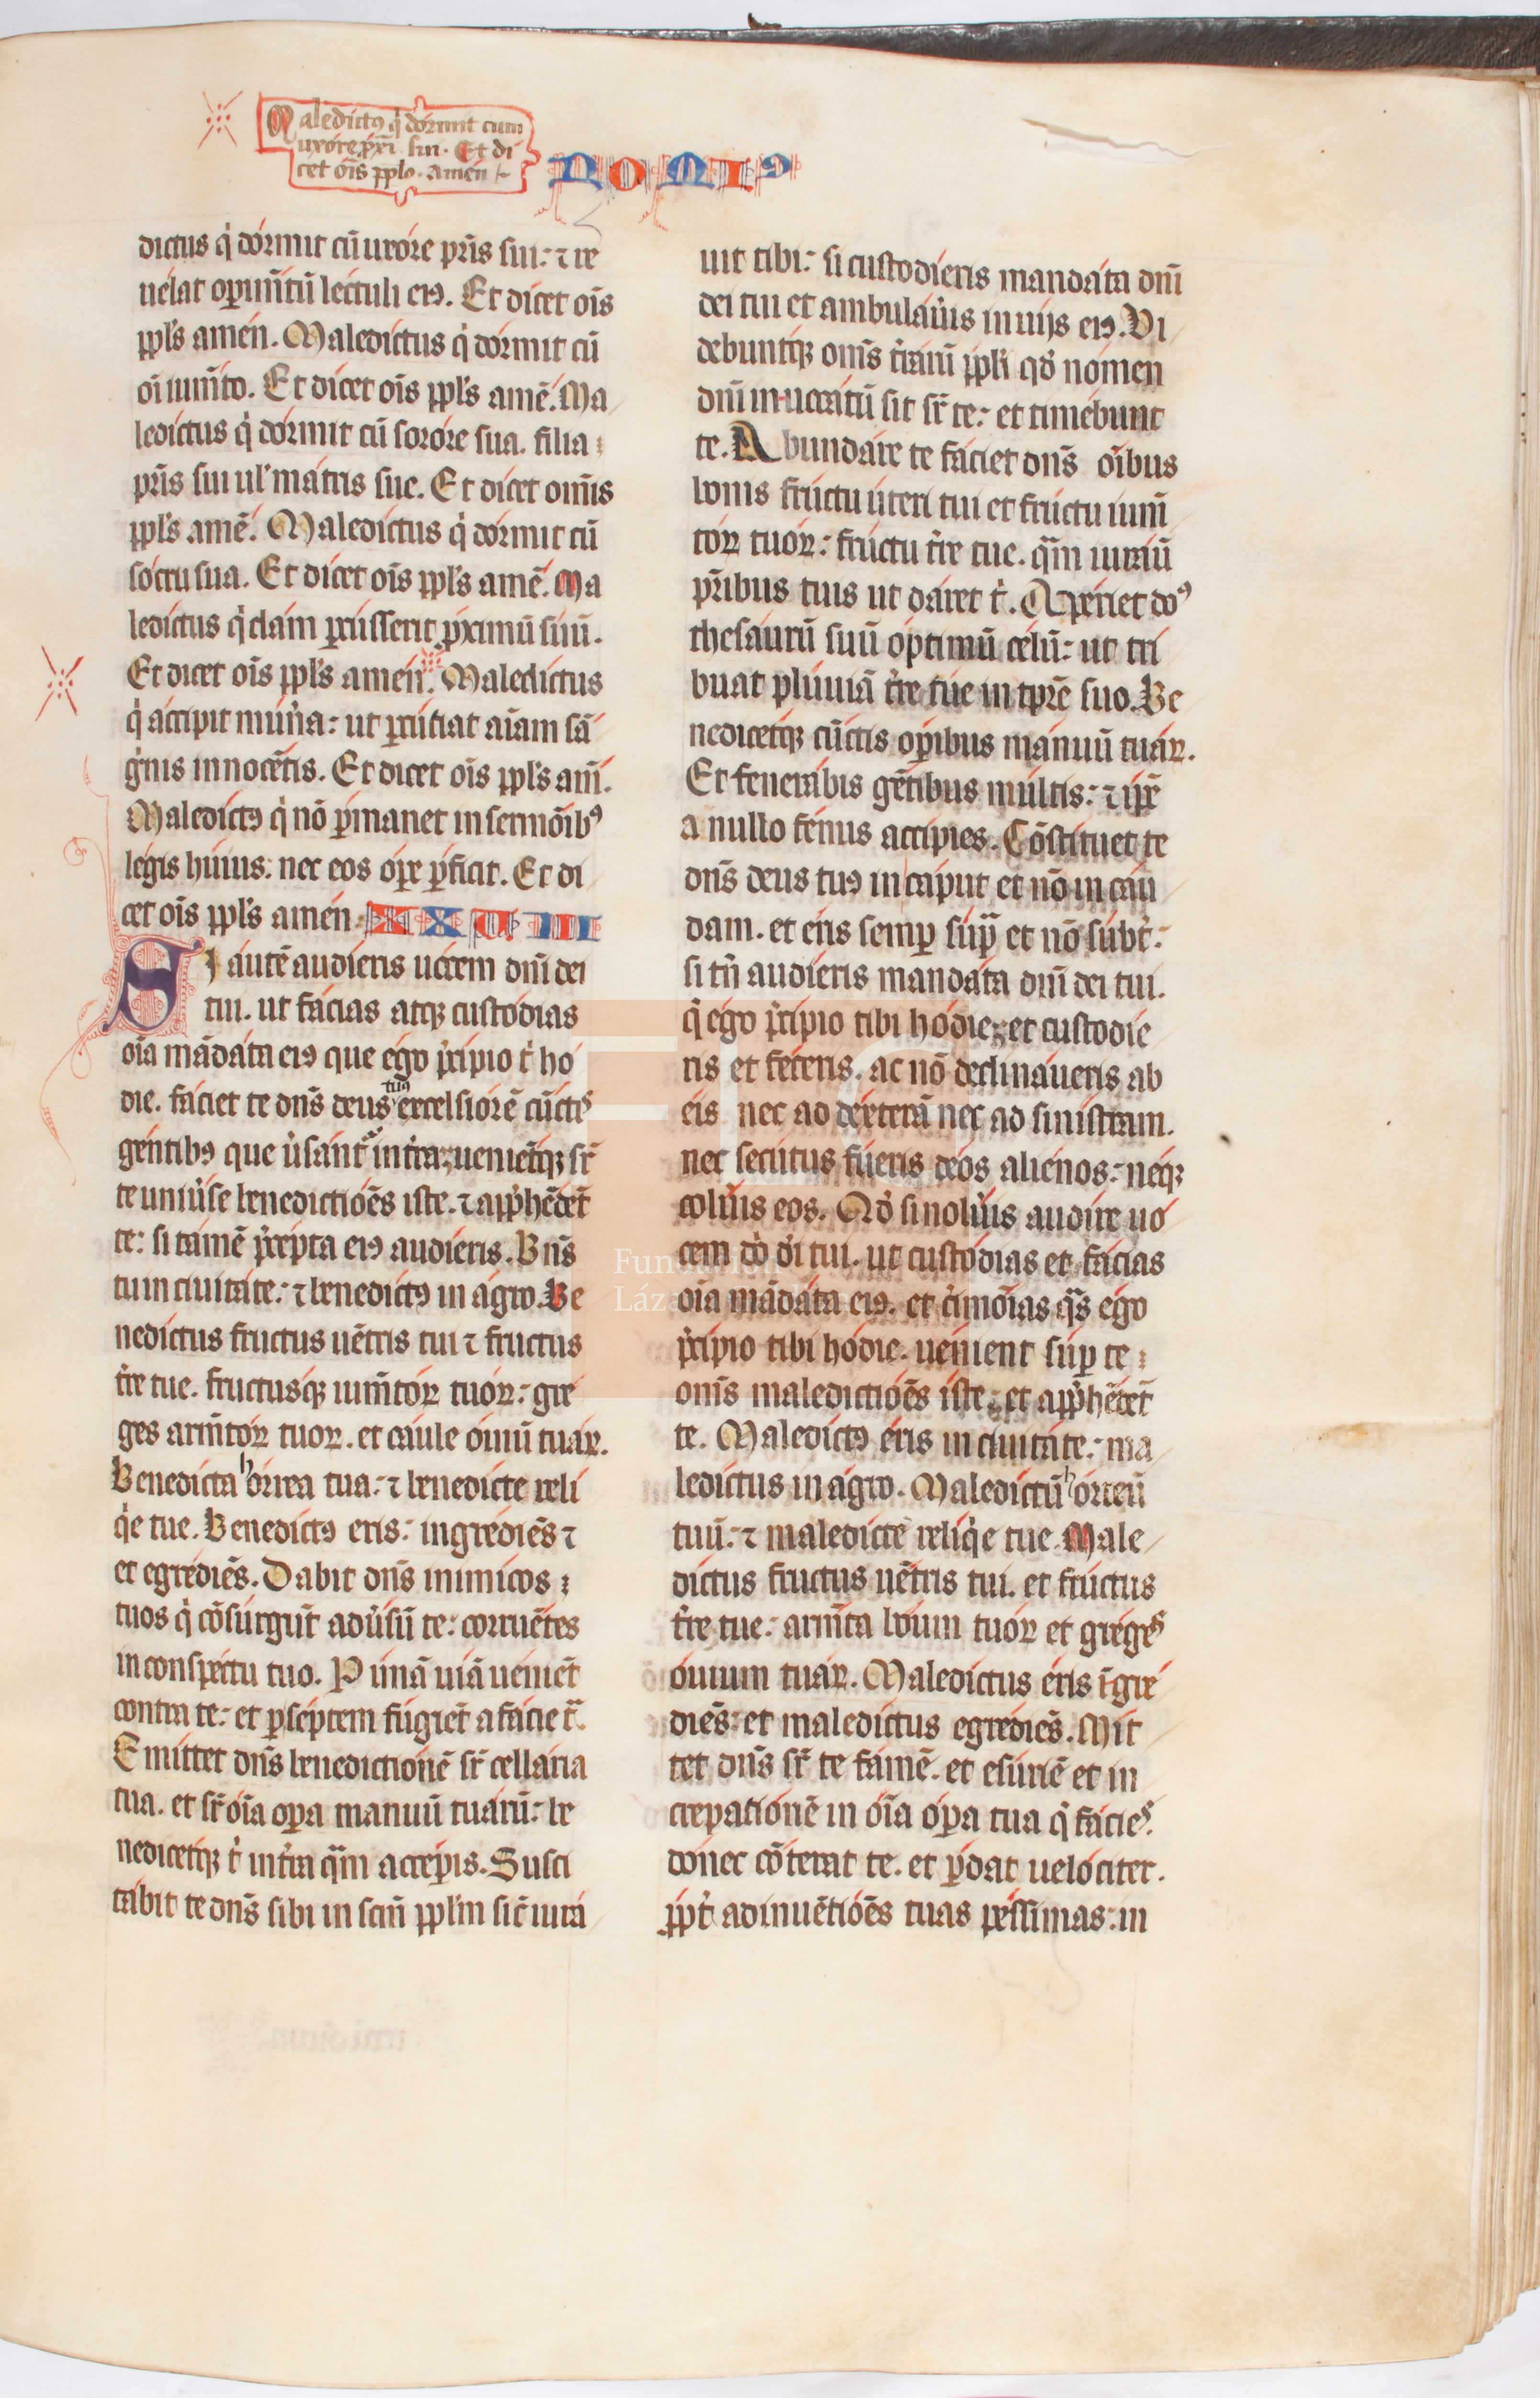 Maledictꝰ q̇ dormit cum
uxore ꝓxĩ sui. Et di
cet oĩs ꝑplo. amen
NOMIꝰ
dictus q̇ dormit cũ uxore pr̃is sui: ⁊ re
uelat oꝑim̃tũ lectuli eiꝰ. Et dicet oĩs
ppl's amen. Maledictus q̇ dormit cũ
oĩ ium̃to. Et dicet oĩs ppl's amẽ. Ma
ledictus q̇ dormit cũ sorore sua. filia
pr̃is sui ul' matris sue. Et dicet om̃is
ppl's amẽ. Maledictus q̇ dormit cũ
socru sua. Et dicet oĩs ppl's amẽ. Ma
ledictus q̇ clam ꝑcusserit ꝓximũ suũ.
Et dicet oĩs ppl's amen. Maledictus
q̇ accipit mun̓a: ut ꝑcutiat aĩam sã
g̓nis innocẽtis. Et dicet oĩs ppl's am̃.
Maledictꝰ q̇ nõ ꝑmanet in sermõibꝰ
legis huius: nec eos oꝑe ꝑficit. Et di
cet oĩs ppl's amen. XXVIII
Si autẽ audieris uocem dñi dei
tui. ut facias atqꝫ custodias
oĩa mãdata eiꝰ que ego p̓cipio t̓ ho
die. faciet te dñs deus tuꝰ excelsiorẽ cũctꝭ
gentibꝰ que ũsant᷑ in t̓ra: uenientqꝫ sr̃
te uniũse benedictiões iste. ⁊ appʼhẽdẽt
te: si tamẽ p̓cepta eiꝰ audieris. Bñs
tu in ciuitate: ⁊ benedictꝰ in agro. Be
nedictus fructus uẽtris tui ⁊ fructus
t̓re tue. fructusqꝫ ium̃toꝝ tuoꝝ: gre
ges arm̃toꝝ tuoꝝ. et caule ouiũ tuaꝝ.
Benedicta horrea tua: ⁊ benedicte reli
q̓e tue. Benedictꝰ eris: ingrediẽs ⁊
et egrediẽs. Dabit dñs inimicos
tuos q̇ cõsurgũt adũsũ te: corruẽtes
in conspectu tuo. P unã uiã ueniẽt
contra te: et ꝑ septem fugiẽt a facie t᷑.
Emittet dñs benedictionẽ sr̃ cellaria
tua. et sr̃ oĩa oꝑa manuũ tuarũ: be
nedicetqꝫ t̓ in t̓ra qᷓm acceꝑis. Susci
tabit te dñs sibi in scm̃ ppl'm sic̃ iura
uit tibi: si custodieris mandata dñi
dei tui et ambulaũis in uijs eiꝰ. Vi
debuntqꝫ om̃s t̓raꝝ ppl'i qđ nomen
dñi inuocatũ sit sr̃ te: et timebunt
te. Abundare te faciet dñs oĩbus
bonis fructu uteri tui et fructu ium̃
toꝝ tuoꝝ: fructu t̓re tue. qᷓm iurauĩ
pr̃ibus tuis ut daret t̓. Aperiet dñꝰ
thesaurũ suũ optimũ celũ: ut tri
buat pluuiã t̓re tue in tꝑe suo. Be
nedicetqꝫ cũctis oꝑibus manuũ tuaꝝ.
Et fenerabis gẽtibus multis: ⁊ ip̃e
a nullo fenus accipies. Cõstituet te
dñs deus tuꝰ in caput et nõ in cau
dam. et eris semꝑ sup̃ et nõ subt̓:
si tñ audieris mandata dñi dei tui.
q̇ ego p̓cipio tibi hodie: et custodie
ris et feceris. ac nõ declinaueris ab
eis nec ad dexterã nec ad sinistram.
nec secutus fueris deos alienos: neqꝫ
coluĩs eos. Qđ si noluĩs audire uo
cem dñi di tui. ut custodias et facias
oĩa mãdata eiꝰ. et c̓imoĩas qᷓs ego
p̓cipio tibi hodie. uenient suꝑ te
om̃s maledictiões iste: et appʼhẽdẽt
te. Maledictꝰ eris in ciuitate: ma
ledictus in agro. Maledictũ horreũ
tuũ: ⁊ maledicte reliq̓e tue. Male
dictus fructus uẽtris tui. et fructus
t̓re tue: arm̃ta boum tuoꝝ et gregeꝭ
ouium tuaꝝ. Maledictus eris ĩgre
diẽs: et maledictus egrediẽs. Mit
tet dñs sr̃ te famẽ. et esuriẽ et in
crepationẽ in oĩa oꝑa tua q̇ facieꝭ.
donec cõterat te. et ꝑdat uelociter.
ꝓpt̓ adinuẽtiões tuas pessimas: in
Fundación
Láza